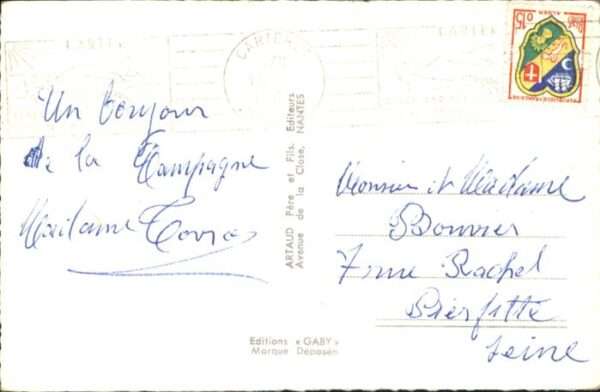 Un bonjour
de la Campagne
Madame Torres
ARTAUD Père et Fils, Editeurs
Avenue de la Close, NANTES
Editions « GABY »
Marque Déposée
Monsieur et Madame
Bouvier
7 rue Rachel
Pierfitte
Seine